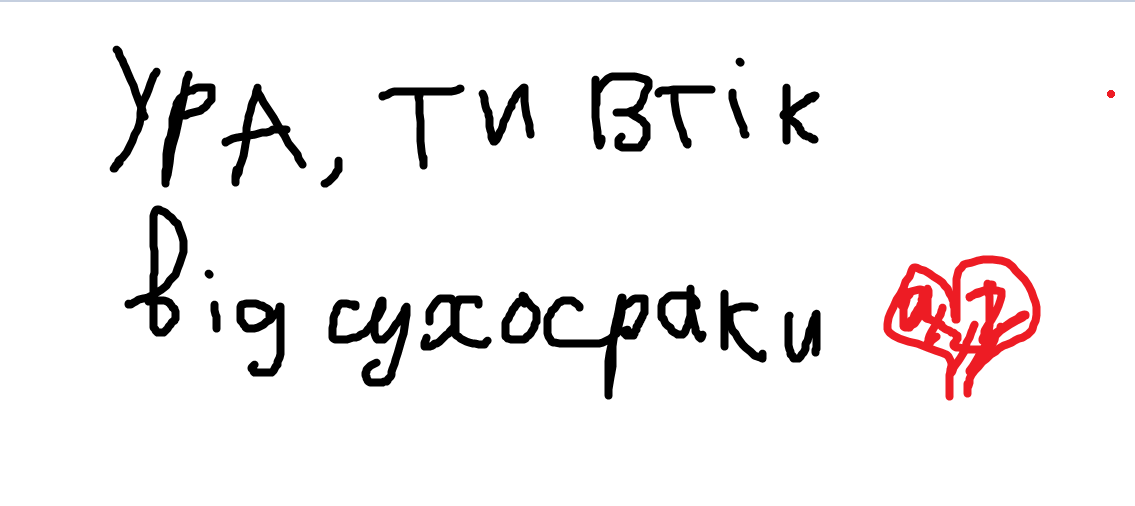 УРА, ТИ ВТІК
від сухосраки